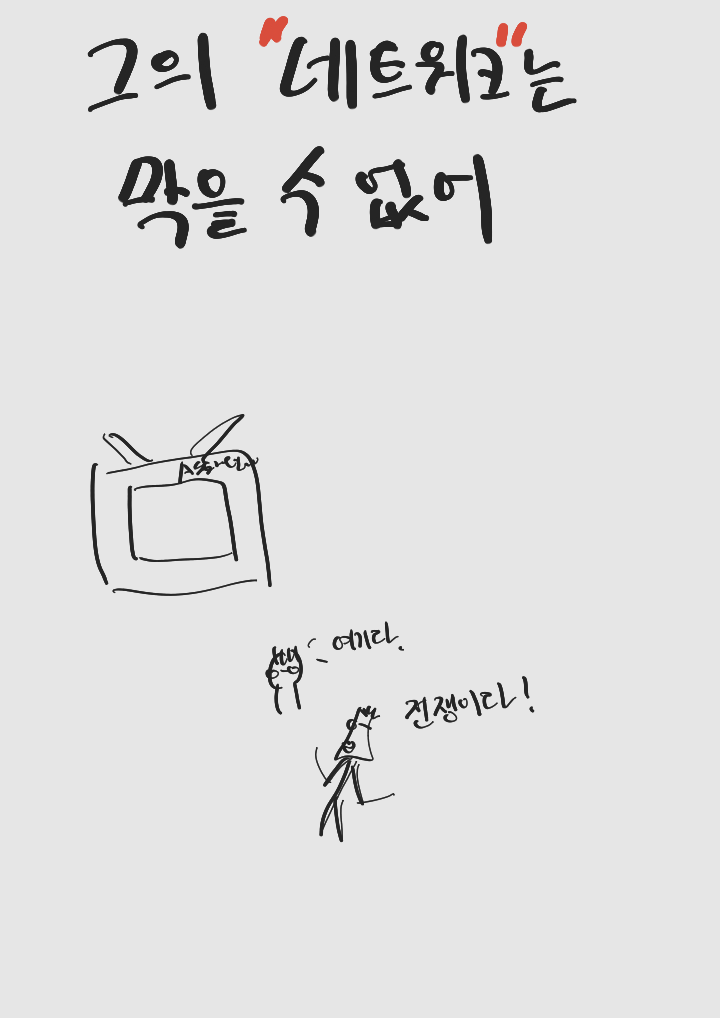 그의 "네트워크"는
막을 수 없어
여기다.
전쟁이다!